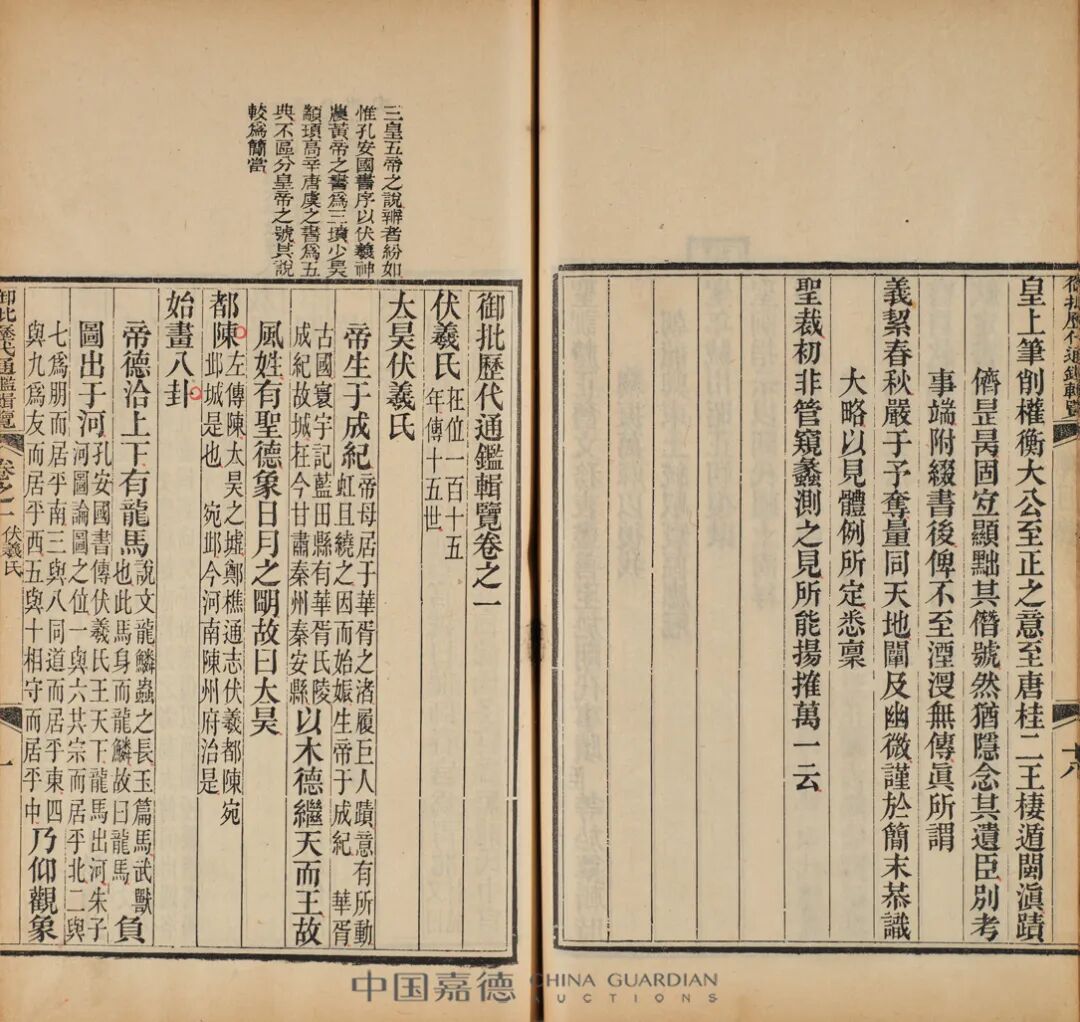 御批歷代通鑑輯覽
十八
皇上筆削權衡大公至正之意至唐桂二王棲遁閩滇蹟
儕昰昺固宜顯黜其僭號然猶隱念其遺臣別考
事端附綴書後俾不至湮沒無傳眞所謂
義絜春秋嚴于予奪量同天地闡及幽微謹於簡末恭識
大略以見體例所定悉稟
聖裁初非管窺蠡測之見所能揚搉萬一云
三皇五帝之說辯者紛如
惟孔安國書序以伏羲神
農黃帝之書爲三墳少昊
顓頊高辛唐虞之書爲五
典不區分皇帝之號其說
較爲簡當
御批歷代通鑑輯覽卷之一
伏羲氏在位一百十五年傳十五世
太昊伏羲氏
帝生于成紀帝母居于華胥之渚履巨人蹟意有所動虹且繞之因而始娠生帝于成紀 華胥
古國寰宇記藍田縣有華胥氏陵成紀故城在今甘肅秦州秦安縣以木德繼天而王故
風姓有聖德象日月之朙故曰太昊
都陳左傳陳太昊之墟鄭樵通志伏羲都陳宛邱城是也 宛邱今河南陳州府治是
始畫八卦
帝德洽上下有龍馬說文龍鱗蟲之長玉篇馬武獸也此馬身而龍鱗故曰龍馬負
圖出于河孔安國書傳伏羲氏王天下龍馬出河朱子河圖論圖之位一與六共宗而居乎北二與
七爲朋而居乎南三與八同道而居乎東四與九爲友而居乎西五與十相守而居乎中乃仰觀象
御批歷代通鑑輯覽
卷之一 伏羲氏
一
中国嘉德 CHINA GUARDIAN
AUCTIONS